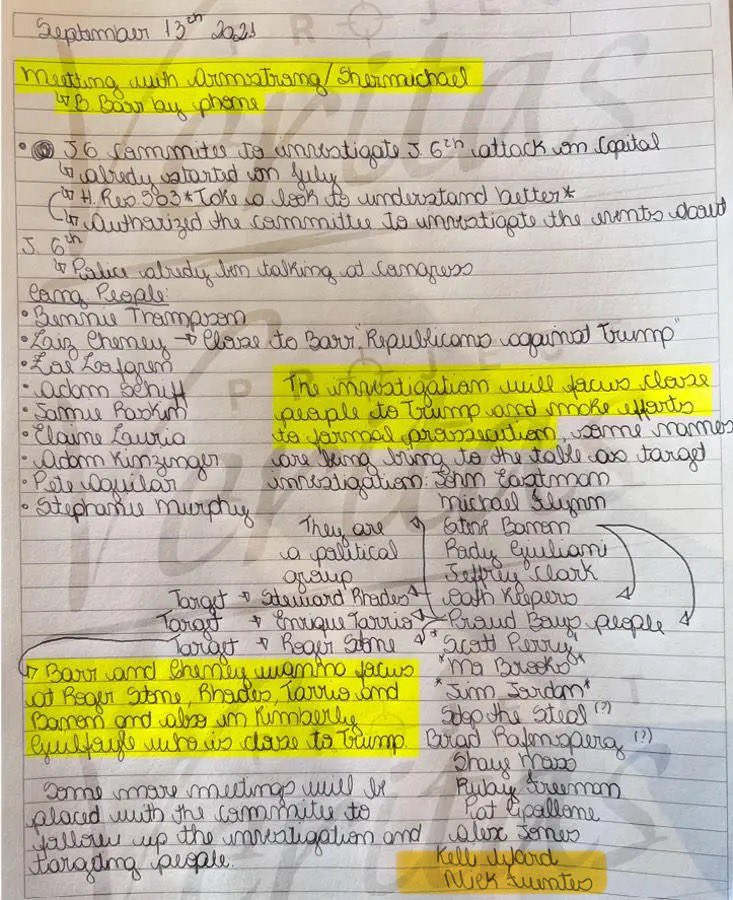 September 13th 2021
Meeting with Armstrong/Shermichael
↳ B. Barr by phone
• J6 Committee to investigate J. 6th attack on Capital
↳ alredy started on July
↳ H. Res. 503 *Take a look to understand better*
↳ Authorized the committee to investigate the events about
J. 6th
↳ Police alredy been talking at Congress
Cong People:
• Bennie Thompson
• Laiz Cheney → Close to Barr "Republicans against Trump"
• Zoe Lofgren
• Adam Schiff
• Jamie Raskin
• Elaine Lauria
• Adam Kinzinger
• Pete Aguilar
• Stephanie Murphy
The investigation will focus close
people to Trump and make efforts
to formal prossecution, some names
are being bring to the table as target
investigation: John Eastman
Michael Flynn
Steve Bannon
Rudy Giuliani
Jeffrey Clark
Oath Keepers
Proud Boys people
*Scott Perry*
*Mo Brooks*
*Jim Jordan*
Stop the Steal (?)
Brad Rafensperg (?)
Shaye Moss
Ruby Freeman
Pat Cipollone
Alex Jones
Kelli Ward
Nick Fuentes
They are
a political
group
Target → Steward Rhodes
Target → Enrique Tarrio
Target → Roger Stone
↳ Barr and Cheney wanna focus
at Roger Stone, Rhodes, Tarrio and
Bannon and also in Kimberly
Guilfoyle who is close to Trump
Some more meetings will be
placed with the committe to
follow up the investigation and
targeting people.
PROJECT
Veritas
PROJECT
Veritas